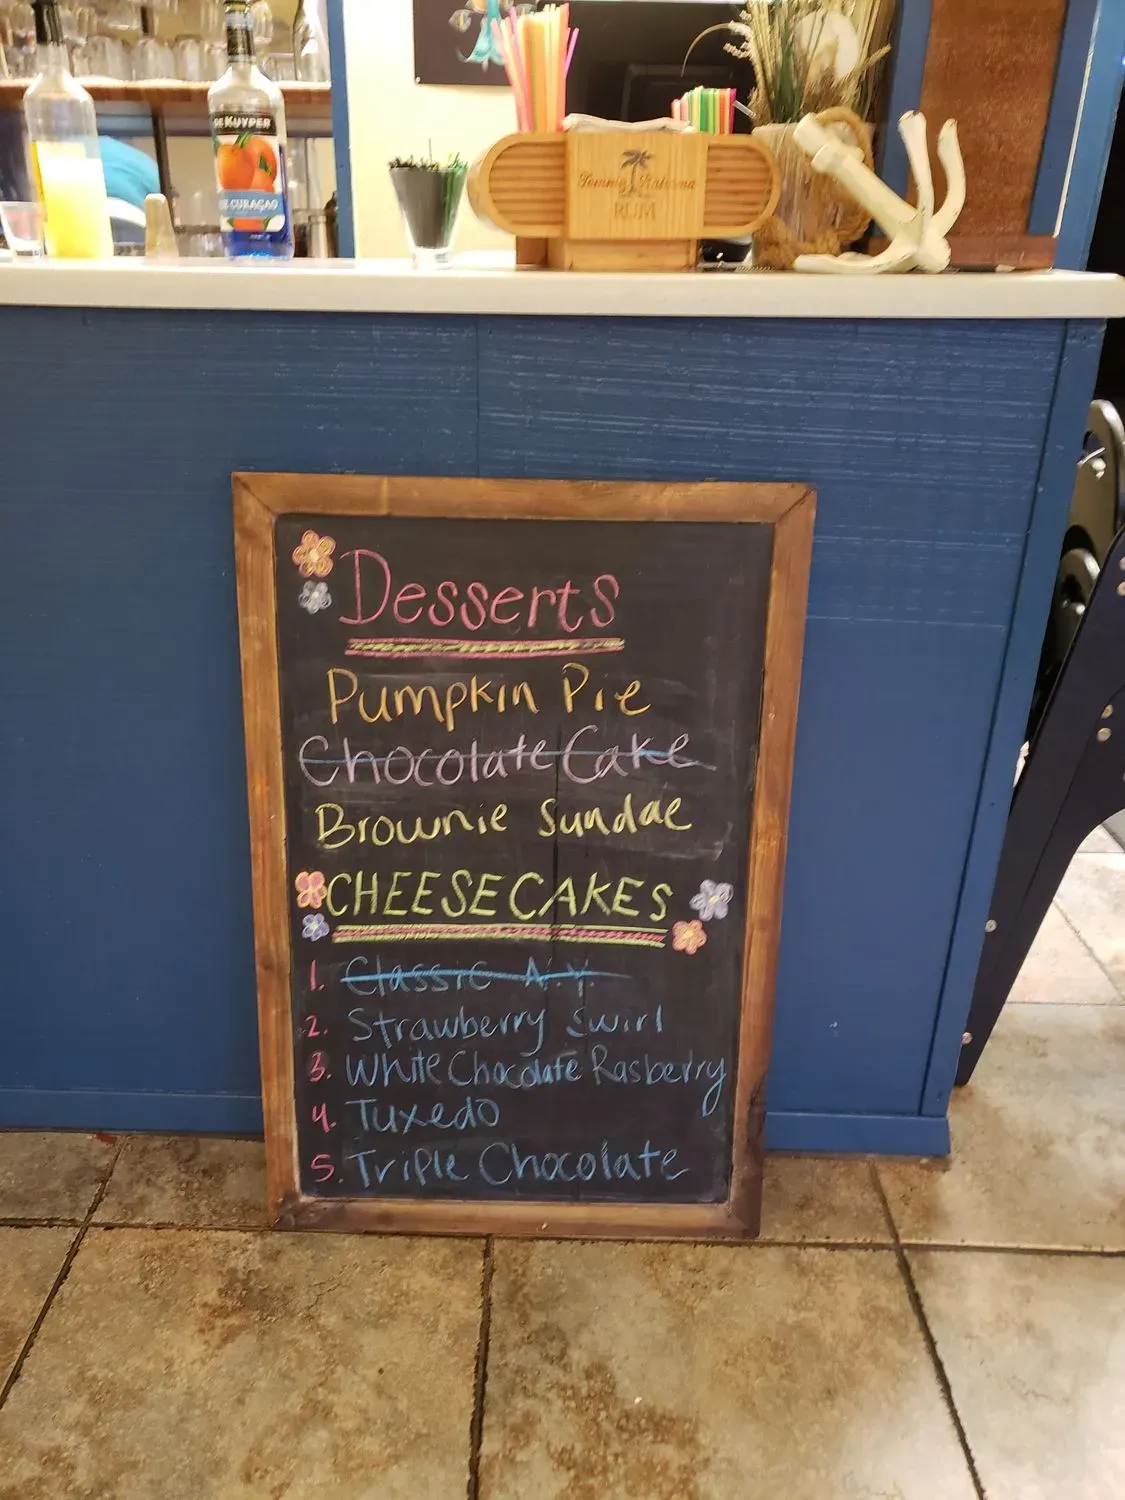 DE KUYPER
E CURAÇAO
Tommy Bahama
RUM
Desserts
Pumpkin Pie
Chocolate Cake
Brownie Sundae
CHEESECAKES
1. Classic N.Y.
2. Strawberry Swirl
3. White Chocolate Rasberry
4. Tuxedo
5. Triple Chocolate